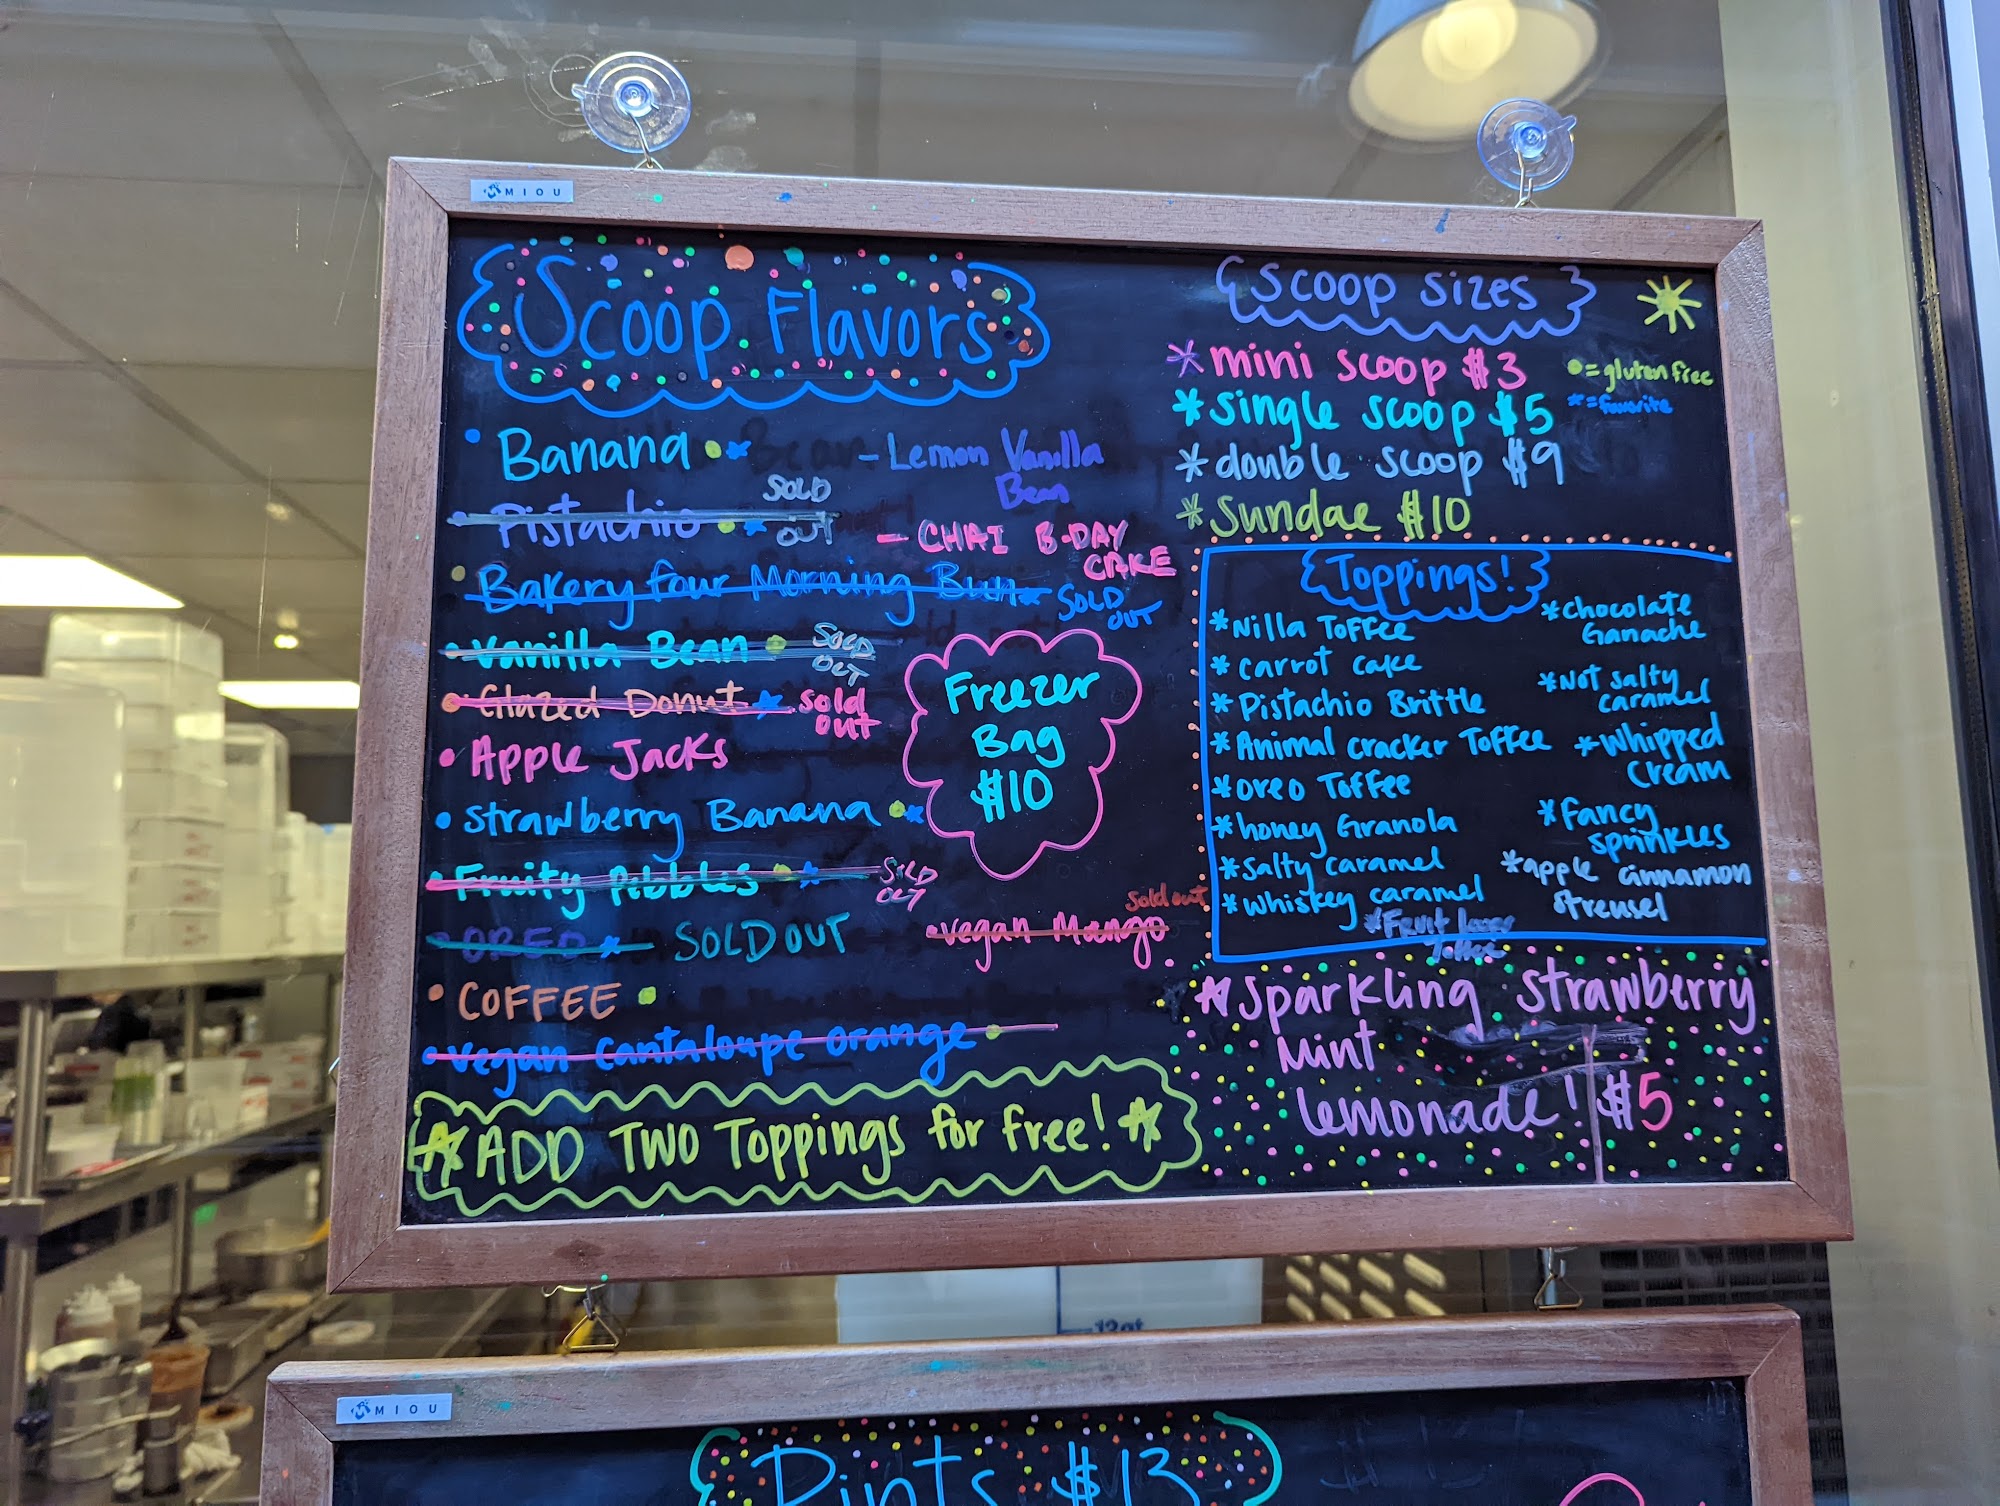 MIOU
Scoop Flavors
Banana
- Lemon Vanilla
Bean
Pistachio
SOLD
OUT
- CHAI B-DAY
CAKE
Bakery four Morning Bun
SOLD
OUT
Vanilla Bean
SOLD
OUT
Glazed Donut
sold
out
Apple Jacks
Strawberry Banana
Fruity Pebbles
SOLD
OUT
OREO
SOLD OUT
Vegan Mango
Sold out
COFFEE
Vegan Cantaloupe orange
ADD TWO Toppings for free!
Freezer
Bag
$10
Scoop Sizes
*mini scoop $3
*single scoop $5
*double scoop $9
*Sundae $10
= gluten free
*= favorite
Toppings!
*Nilla Toffee
*carrot cake
*Pistachio Brittle
*Animal cracker Toffee
*oreo Toffee
*honey Granola
*Salty caramel
*whiskey caramel
*Fruit Lover
Toffee
*chocolate
Ganache
*Not salty
caramel
*Whipped
cream
*Fancy
sprinkles
*apple cinnamon
streusel
Sparkling Strawberry
Mint
Lemonade! $5
13qt
MIOU
Pints $13